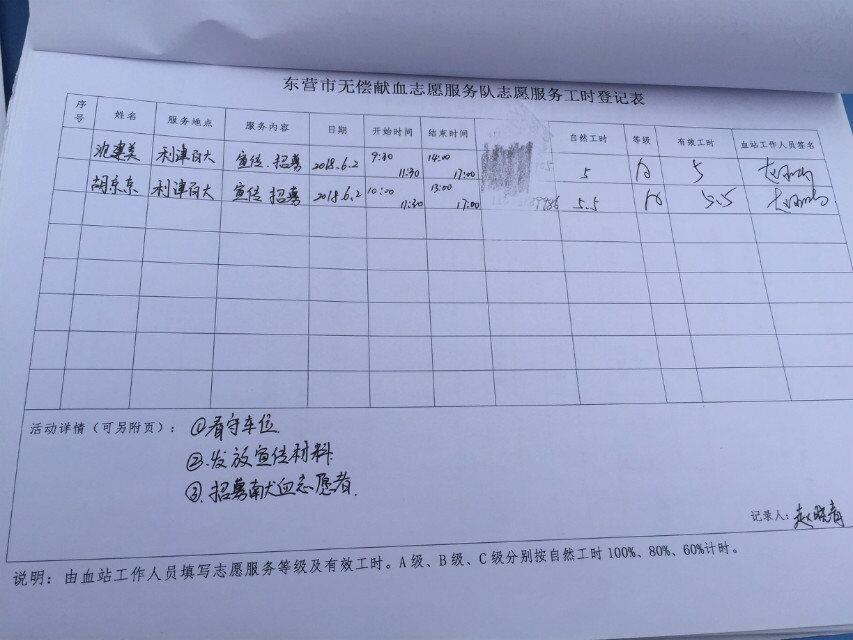 东营市无偿献血志愿服务队志愿服务工时登记表
序号 姓名 服务地点 服务内容 日期 开始时间 结束时间 自然工时 等级 有效工时 血站工作人员签名
沈建美 利津百大 宣传.招募 2018.6.2 9:30 11:30 14:00 17:00 5 A 5
胡东东 利津百大 宣传 招募 2018.6.2 10:00 11:30 13:00 17:00 5.5 A 5.5
活动详情（可另附页）： ①看守车位.
②.发放宣传材料.
③.招募献血志愿者.
记录人: 赵晓青
说明：由血站工作人员填写志愿服务等级及有效工时。A级、B级、C级分别按自然工时100%、80%、60%计时。